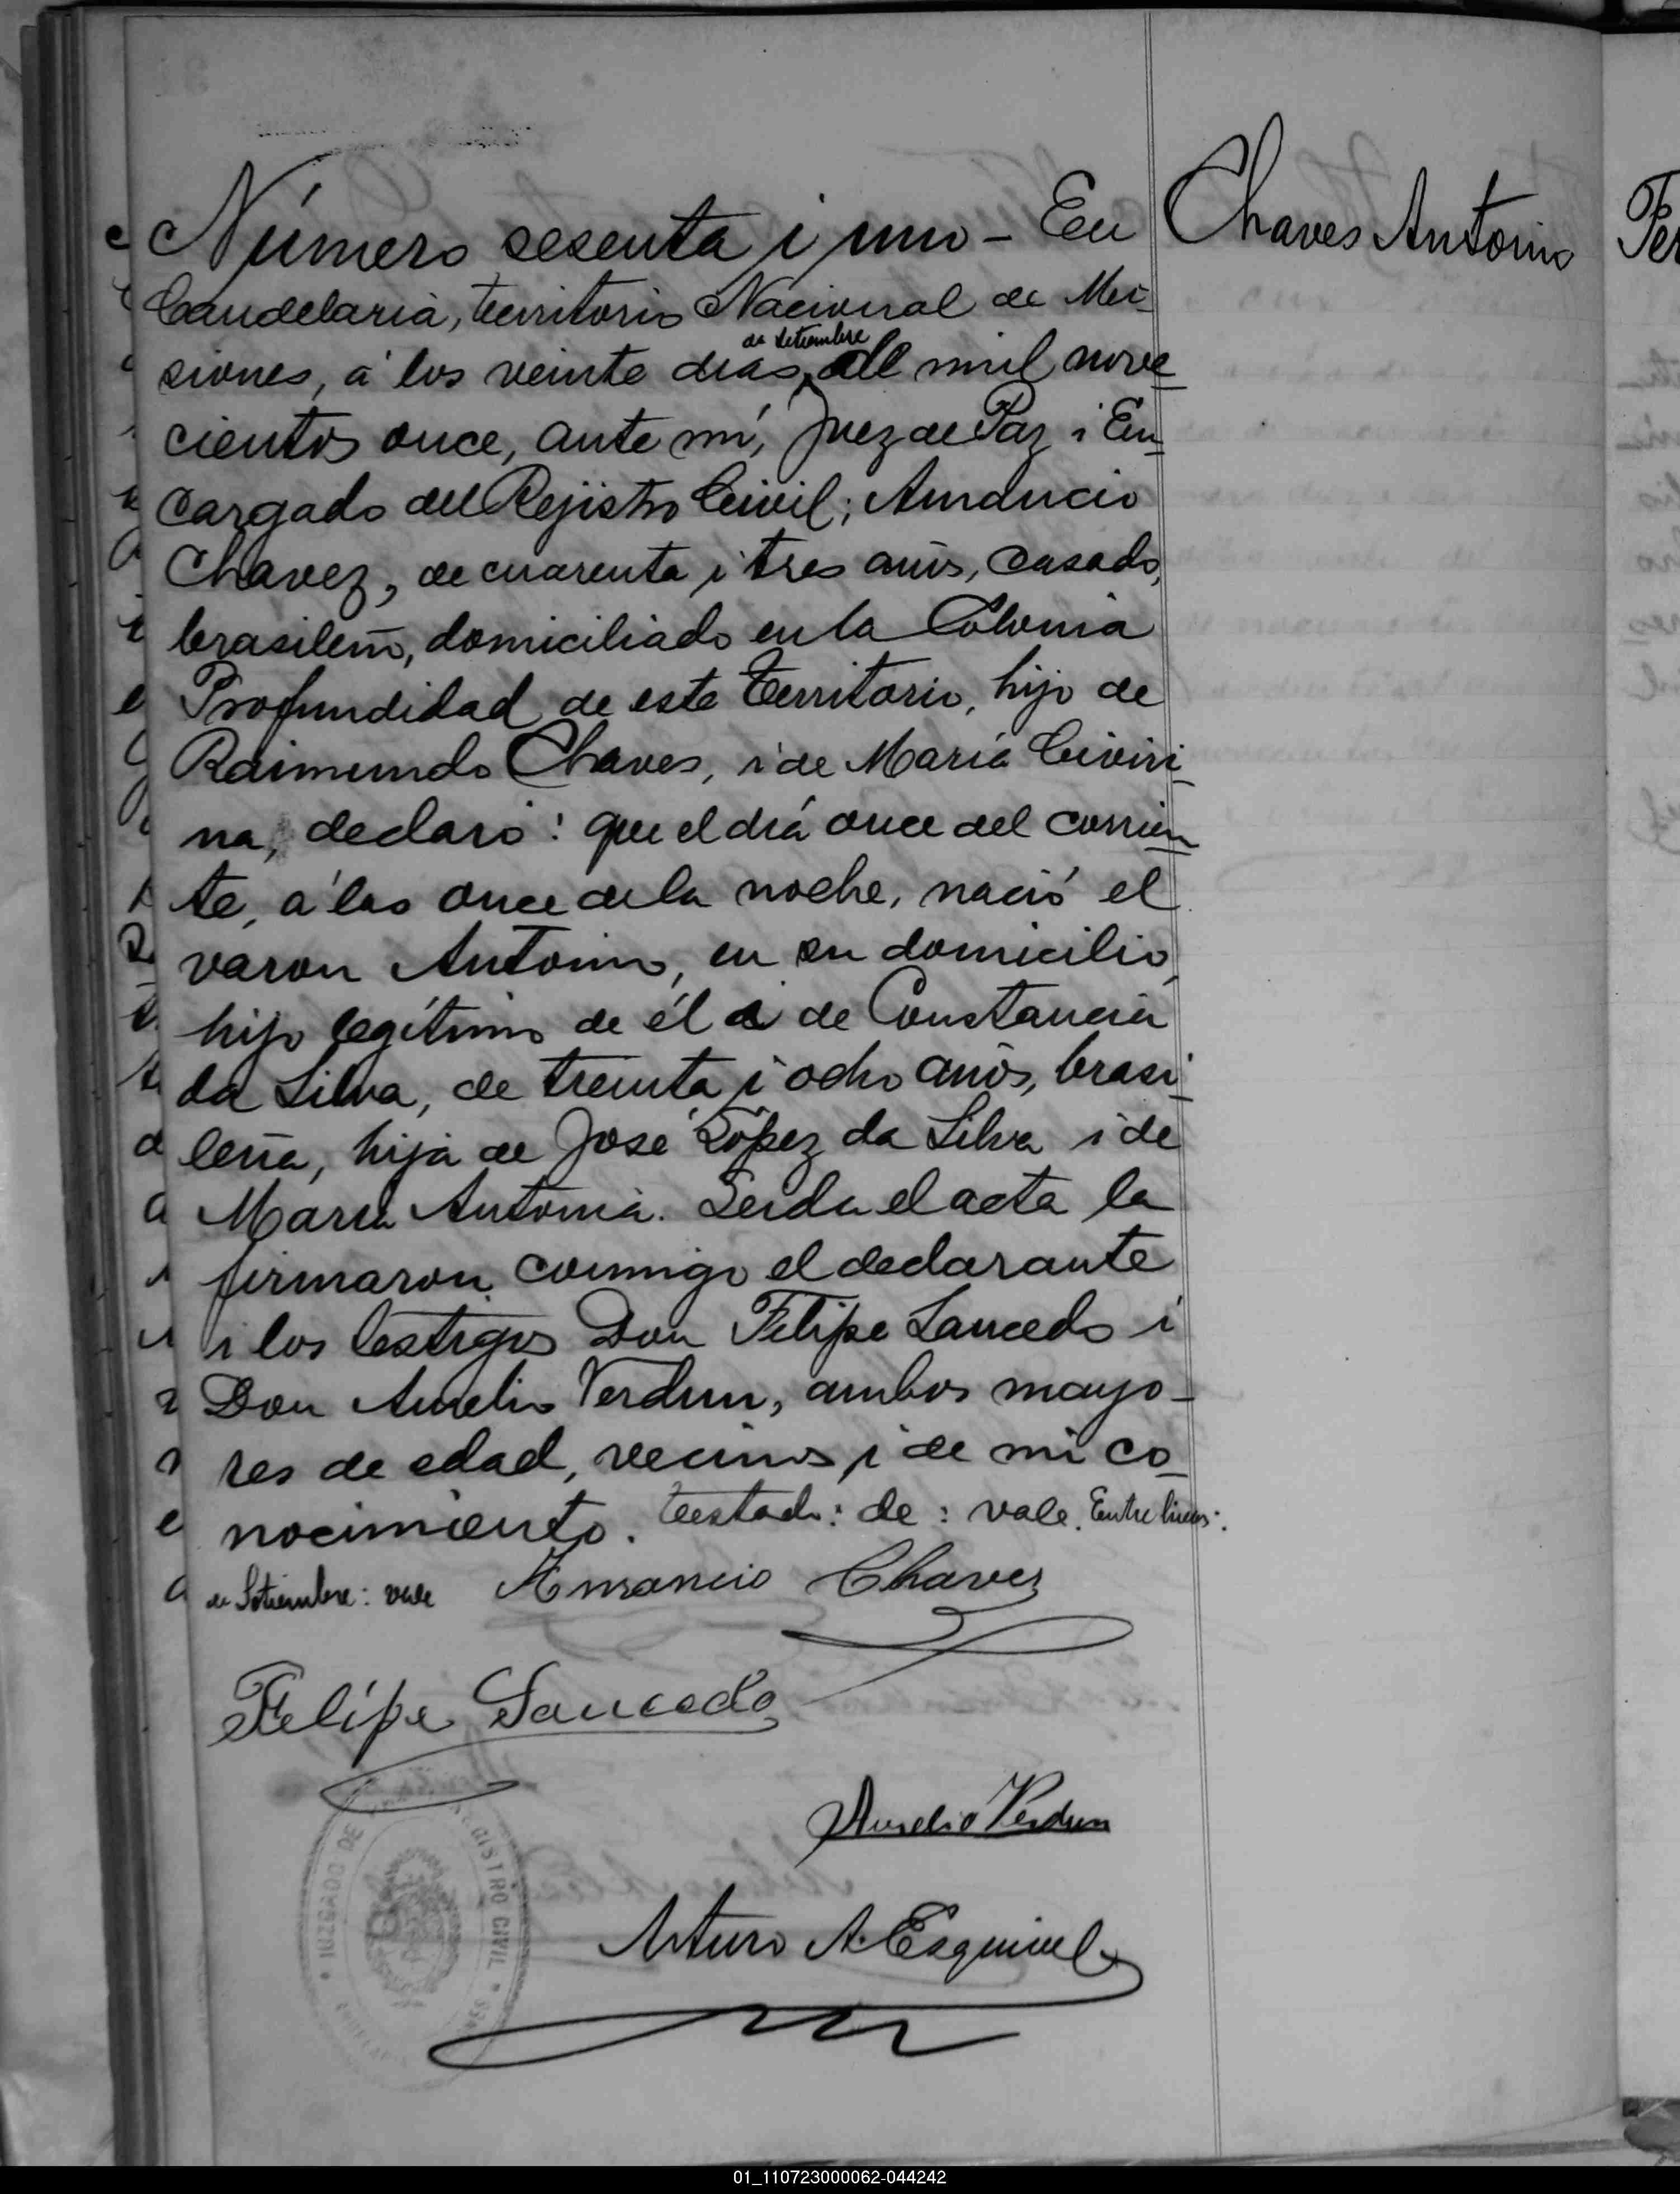 Número sesenta i uno - En
Chaves Antonio
Candelaria, territorio Nacional de Mi-
siones, á los veinte dias de Setiembre del mil nove
cientos once, ante mí, Juez de Paz i En-
cargado del Rejistro Civil; Amancio
Chavez, de cuarenta i tres años, casado,
brasileño, domiciliado en la Colonia
Profundidad de este territorio, hijo de
Raimundo Chaves, i de María Civiri-
na, declaró: que el dia once del corrien
te, á las once de la noche, nació el
varon Antonio, en su domicilio,
hijo legítimo de él i de Constancia
da Silva, de treinta i ocho años, brasi-
leña, hija de José López da Silva i de
Maria Antonia. Leida el acta la
firmaron conmigo el declarante
i los testigos Don Felipe Saucedo i
Don Aurelio Verdun, ambos mayo-
res de edad, vecinos i de mi co-
nocimiento. Testado: de: vale. Entre lineas:
de Setiembre: vale Amancio Chavez
Felipe Saucedo
Aurelio Verdun
Arturo A. Esquivel
JUZGADO DE
GISTRO CIVIL
01_110723000062-044242